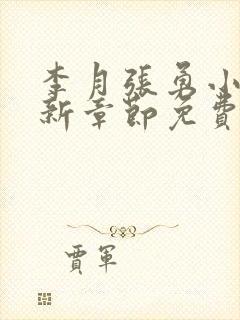 李月張勇小
新章節免費
賈軍